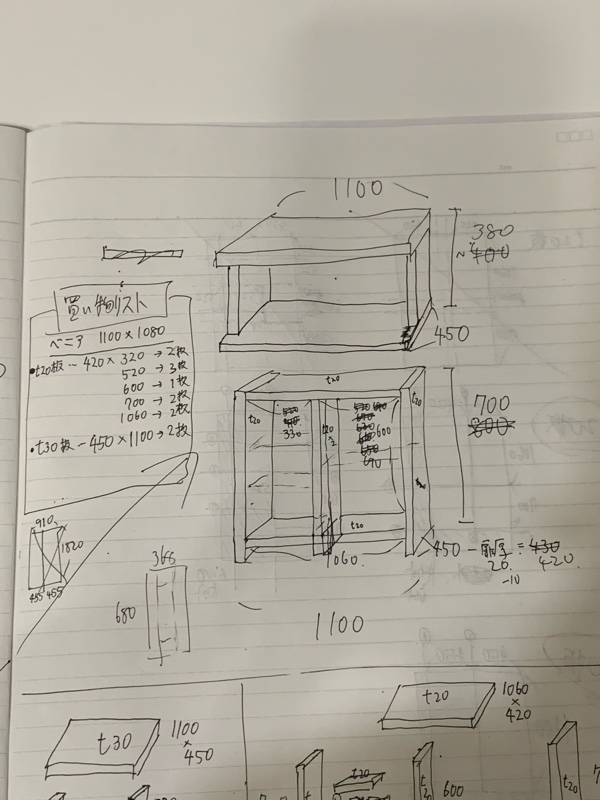 1100
380
~400
450
買い物リスト
ベニア 1100×1080
・t20板…420×320→2枚
520→3枚
600→1枚
700→2枚
1060→2枚
・t30板-450×1100→2枚
t20
t20
t20
330
600
690
t20
t20
700
800
1060
450-扉厚=430
20
-10
420
1100
910
1820
455 455
368
680
t30
1100
×
450
t20
1060
×
420
t20
600
t20